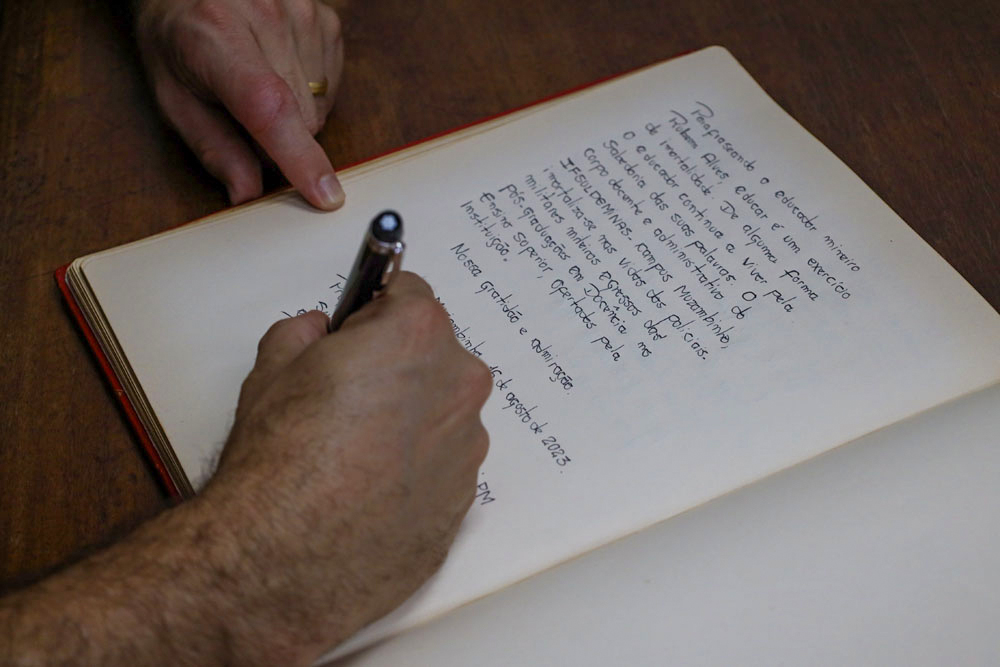 Parafraseando o educador mineiro
Rubem Alves, educar é um exercício
de imortalidade. De alguma forma
o educador continua a viver pela
Sabedoria das suas palavras. O
corpo docente e administrativo do
IFSULDEMINAS - campus Muzambinho,
imortaliza-se nas vidas dos policiais
militares mineiros egressos das
pós-graduações em Docência no
Ensino Superior, ofertadas pela
Instituição.
Nossa gratidão e admiração.
16 de agosto de 2023.
PM